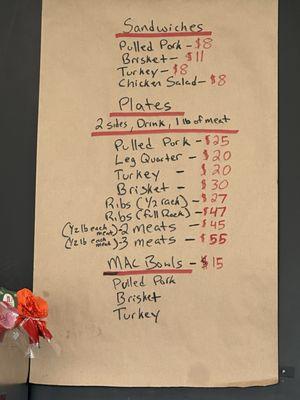 Sandwiches
Pulled Pork - $8
Brisket - $11
Turkey - $8
Chicken Salad - $8
Plates
2 sides, Drink, 1 lb of meat
Pulled Pork - $25
Leg Quarter - $20
Turkey - $20
Brisket - $30
Ribs (1/2 rack) - $27
Ribs (Full Rack) - $47
(1/2 lb each meat) - 2 meats - $45
(1/2 lb each meat) - 3 meats - $55
MAC Bowls - $15
Pulled Pork
Brisket
Turkey